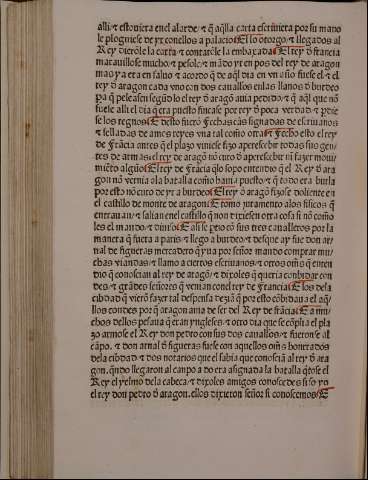 alli ⁊ estouiera en el alarde / ⁊ q̃ aq̃lla carta escriuiera por su mano
le plogniese de yr con ellos a palacio. E lo otorgo / ⁊ llegados al
Rey dierõle la carta ⁊ contarõle la embaxada. El rey de francia
marauillose mucho ⁊ pesole / ⁊ mãdo yr en pos del rey de aragon
mas ya era en saluo ⁊ acordo q̃ de aq̃l dia en vn año fuese el ⁊ el
rey đ aragon cada vno con dos cauallos en las llanos đ burdeo
pa q̃ peleasen segũ lo el rey đ aragõ auia pedido / ⁊ q̃ aq̃l que nõ
fuese alli el dia q̃ era puesto fincase por rey đ poca verdad ⁊ pdie
se los regnos. E desto fuerõ fechas cartas signadas de escriuanos
⁊ selladas de amos reyes vna tal como otra. Fecho esto el rey
de frãcia ãtes q̃ el plazo viniese fizo apercebir todas sus gen-
tes de armas. el rey de aragõ nõ curo đ apercebir ni fazer moui
miẽto algũo. El rey de francia q̃ lo sopo entendio q̃ el Rey đ ara
gon nõ vernia a la batalla como hauia puesto / ⁊ q̃ todo era burla
por esto nõ curo de yr a burdeo. El rey đ aragõ fizose doliente en
el castillo de monte de aragon. E tomo juramento a los fisicos q̃
entrauan / ⁊ salian en el castillo q̃ non dixiesen otra cosa si nõ como
les el mando / ⁊ dixiesẽ. E assi se ptio cõ sus tres caualleros por la
manera q̃ fuera a paris / ⁊ llego a burdeo / ⁊ desque ay fue don ar-
nal de figueras mercadero q̃ yua por señor mando comprar mu-
chas viandas / ⁊ llamo a ciertos escriuanos / ⁊ otros oms q̃ enten
dio q̃ conoscian al rey de aragõ / ⁊ dixoles q̃ queria conbidar con
des / ⁊ grãdes señores q̃ venian con el rey de francia. E los dela
cibdad q̃ vierõ fazer tal despensa dezian q̃ por esto cõbidaua el aq̃
llos condes por q̃ aragon auia de ser del Rey de frãcia. E a mu-
chos dellos pesaua q̃ eran yngleses / ⁊ otro dia que se cõplia el pla
zo armose el Rey don pedro con sus dos cauallos / ⁊ fueronse al
cãpo. ⁊ don arnal đ figueras fuese con aquellos oms honrados
dela cibdad ⁊ dos notarios que el sabia que conosciã al rey đ ara
gon. q̃ndo llegaron al canpo a do era asignada la batalla q̃tose el
Rey el yelmo dela cabeça / ⁊ dixoles amigos conoscedes si so yo
el rey don pedro đ aragon. ellos dixieron señor si conoscemos. E